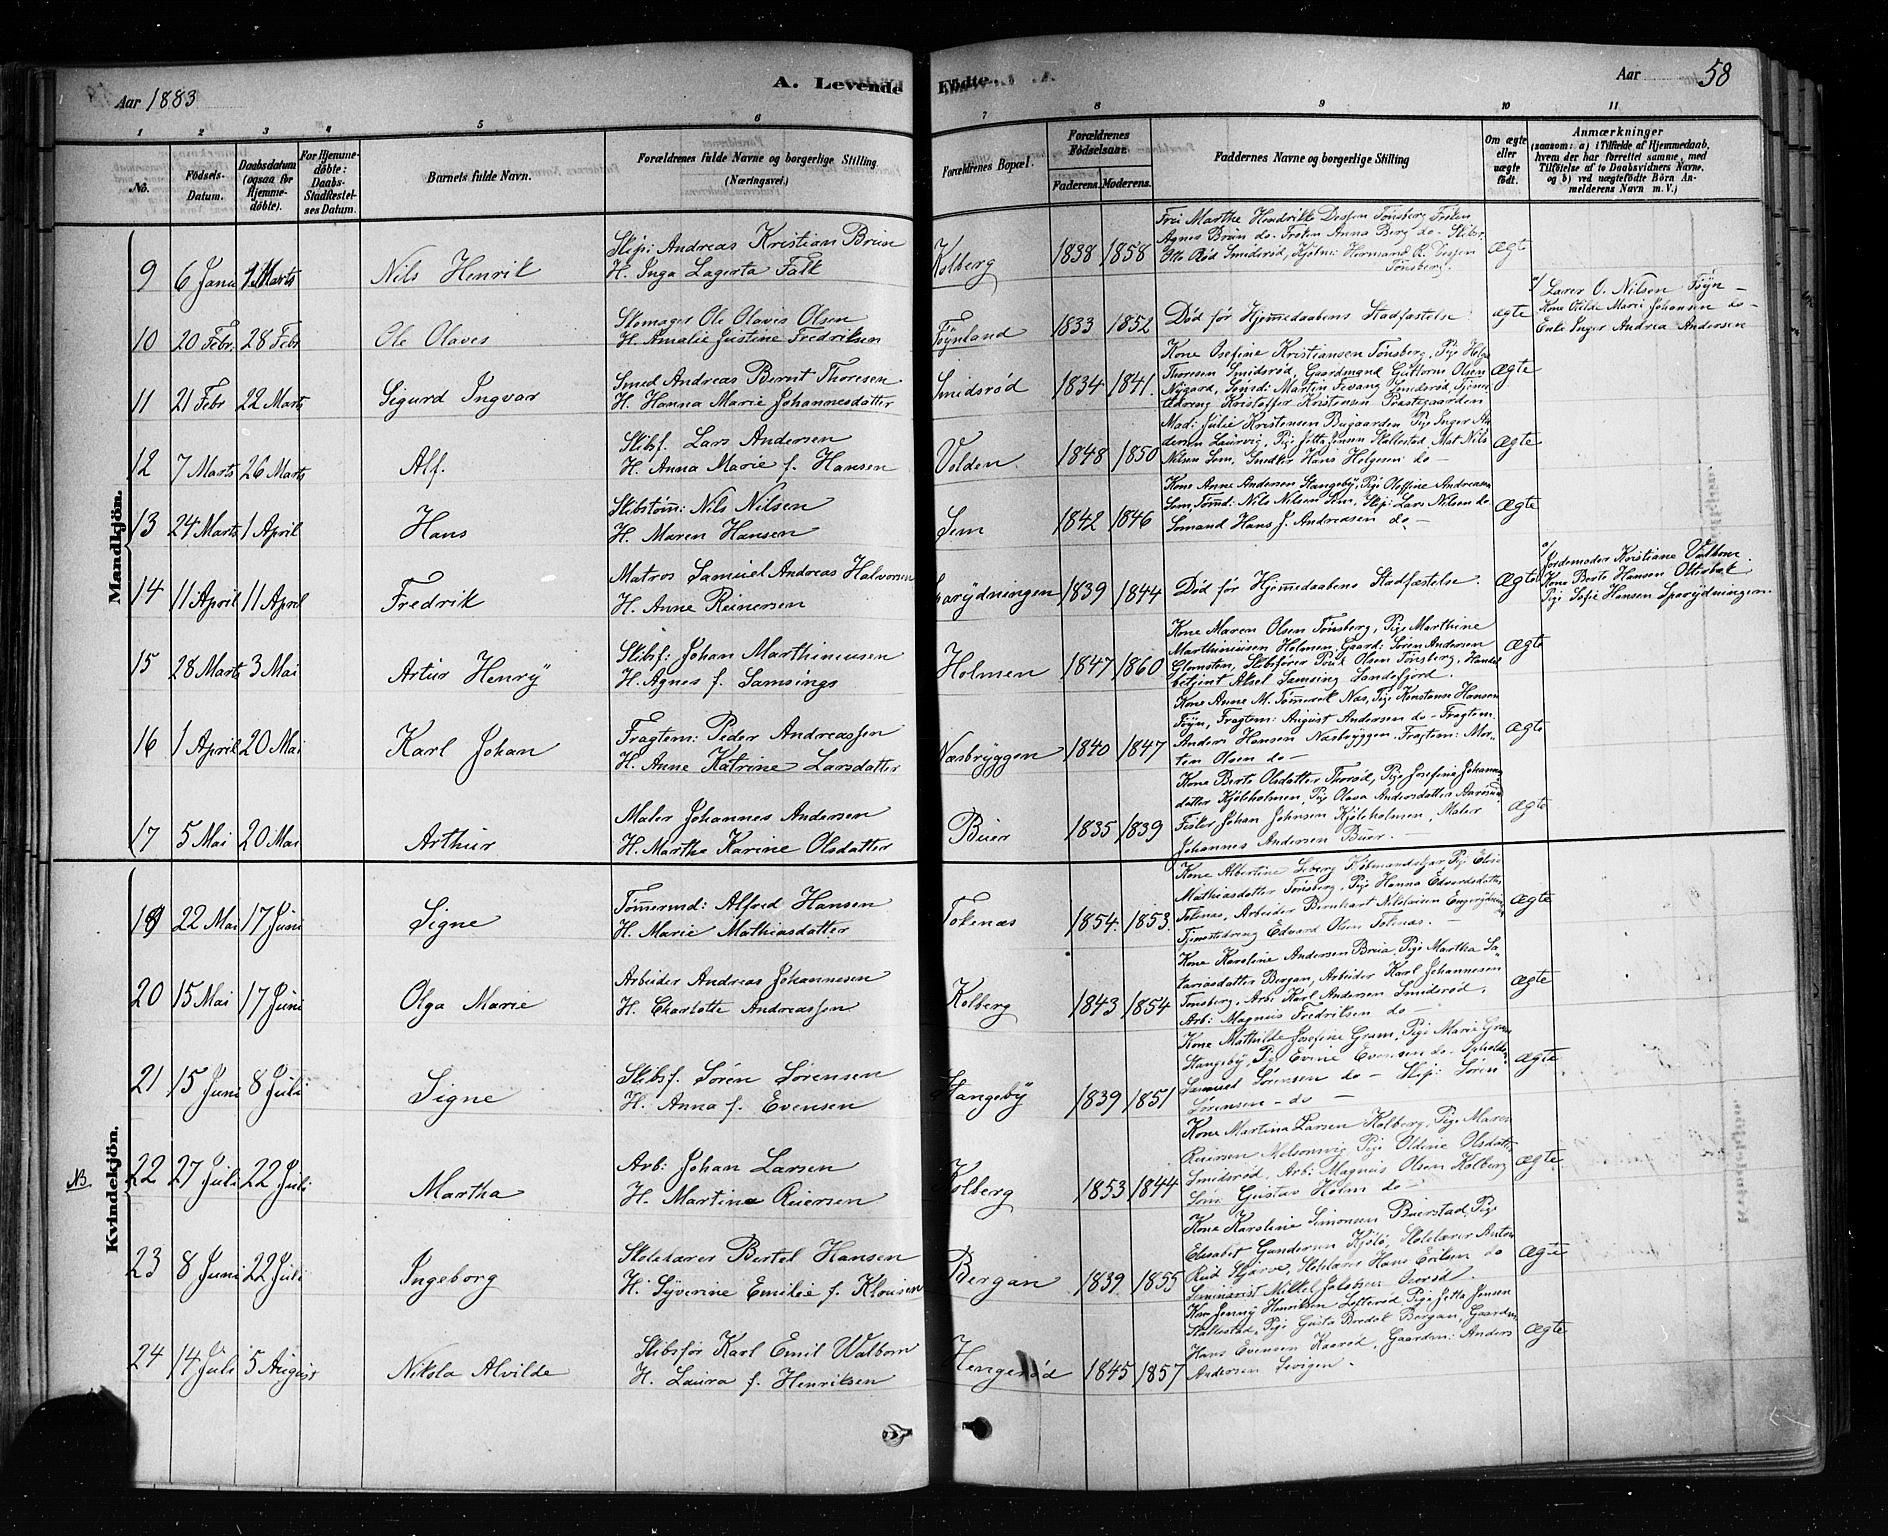 Aar 1883
A. Levende Födte.
Aar 58
1 2 3 4 5 6 7 8 9 10 11
No.
Födsels-Datum.
Daabsdatum (ogsaa for Hjemme-döbte).
For Hjemme-döbte: Daabs-Stadfæstel-ses Datum.
Barnets fulde Navn.
Forældrenes fulde Navne og borgerlige Stilling. (Næringsvei.)
Forældrenes Bopæl.
Forældrenes Födselsaar.
Faderens. Moderens.
Faddernes Navne og borgerlige Stilling
Om ægte eller uægte födt.
Anmærkninger
(saasom: a) i Tilfælde af Hjemmedaab, hvem der har forrettet samme, med Tilföielse af to Daabsvidners Navne, og b) ved uægtefödte Börn An-melderens Navn m. V.)
Mandkjön.
9 6 Janu Marts Nils Henrik
Skip: Andreas Kristian Brün
H. Inga Lagerta Falk
Kolberg 1838 1858
Frü Marthe Hendrikke Dessen Tønsberg Frøken
Agnes Brün do- Frøken Anna Berg do- Skibsr.
Otto Rød Smidsrød,
Tønsberg.
ægte
10 20 Febr. 28 Febr Ole Olaves
Skomager Ole Olaves Olsen
H. Amalie Jüstine Fredriksen
Føynland 1833 1852
Død før Hjemedaabens Stadfæstelse
ægte
a/ Lærer O. Nilsen Føyn -
Kone Hilda Marie Johansen do -
Enke Inger Andrea Andersen
11 21 Febr 22 Marts Sigurd Ingvar
Smed Andreas Bernt Thoresen
H. Hanna Marie Johannesdatter
Smidsrød 1834 1841.
Kone Josefine Kristiansen Tønsberg, Pige Helga
Thoresen Smidsrød, Gaardmand Guttorm Olsen
Nÿgard, Smed: Martin Jevang Smidsrød Tjene-
stdreng Kristoffer Kristensen Præstegaarden
Ægte
12 7 Marts 26 Marts Alf.
Skibsf. Lars Andersen
H. Anna Marie f. Hansen
Volden. 1848 1850
Mad: Julie Kristensen Bugaarden Pige Inger An-
dersen Laurvig, Pige Jetta Jensen Skallestad, Mat Nils
Nilsen Sem, Smdkr Hans Holgesen do -
Ægte
13 24 Marts 1 April Hans
Skibstøm: Nils Nilsen
H. Maren Hansen
Sem 1842 1846
Kone Anne Andersen Stangebÿ, Pige Oleffine Andreasen
Sem, Tømd: Nils Nilsen Sem, Skip: Lars Nilsen do
Sømand Hans J. Andreasen do -
Ægte
14 11 April 11 April Fredrik
Matros Samüel Andreas Halvorsen
H. Anne Reinersen
Sparÿdningen 1839 1844
Død før Hjemedaabens Stadfæstelse.
Ægte
a/ Jordemoder Kristiane Valbom
Kone Berte Hansen Oltesbæk
Pige Sofie Hansen Sparÿdningen.
15 28 Marts 3 Mai Artür Henrÿ
Skibsf: Johan Marthineusen
H. Agnes f. Samsings
Holmen 1847 1860
Kone Maren Olsen Tønsberg, Pige Marthine
Marthiniusen Holmen, Gaard: Søren Andersen
Glomsten, Skibsfører Poul Olsen Tønsberg, Handels
betjent Aksel Samsing Sandefjord.
Ægte
16 1 April 20 Mai Karl Johan
Fragtem: Peder Andreassen
H. Anne Katrine Larsdatter
Næsbrÿggen 1840 1847
Kone Anne M. Tømerek Næs, Pige Konstanse Hansen
Føÿn, Fragtem: Aügust Andersen do - Fragtem.
Anders Hansen Næsbrÿggen. Fragtem: Mor-
ten Olsen do -
Ægte
17 5 Mai 20 Mai Arthür
Maler Johannes Andersen
H. Martha Karine Olsdatter
Büer 1835 1839
Kone Berte Olsdatter Thorød, Pige Josefine Johanns-
datter Kjøleholmen, Pige Olava Andersdatter Aarøsund
Fisker Johan Johnsen Kjøleholmen, Maler
Johannes Andersen Büer. -
Ægte
Kvindekjön.
19 22 Mai 17 Juni Signe
Tømermd: Alfred Hansen
H. Marie Mathiasdatter
Tokenæs 1854. 1853.
Kone Albertine Seberg Kjøbmandskjær Pige Elise
Mathiasdatter Tønsberg, Pige Hanna Edvardsdatter
Tokenæs, Arbeider Bernhart Nilsinsen
Tjenestedreng Edvard Olsen Tokenæs.
Ægte
20 15 Mai 17 Juni Olga Marie
Arbeider Andreas Johannesen
H. Charlotte Andreassen
Kolberg 1843 1854
Kone Karoline Andersen Brüa, Pige Martha Sa-
kariasdatter Bergan, Arbeider Karl Johannesen
Tønsberg, Arb: Karl Andersen Smidsrød,
Arb: Magnus Fredriksen do -
Ægte
21 15 Juni 8 Juli Signe
Skibsf. Søren Sørensen
H. Anna f. Evensen
Stangebÿ 1839 1851
Kone Mathilde Josefine Gram, Pige Marie Gram
Stangebÿ, Pige Evine Evensen do-
Samuel Sørensen do - Skip: Søren
Sørensen - do -
Ægte
NB. 22 27 Juli 22 Juli Martha
Arb: Johan Larsen
H. Martine Reiersen
Kolberg 1853 1844
Kone Martina Larsen Kolberg, Pige Maren
Reiersen Melsomvig Pige Oldine Olsdatter
Smidsrød, Arb: Magnus Olsen Kolberg
Søm: Güstav Holm do -
Ægte
23 8 Juni 22 Juli Ingeborg
Skolelærer Bertel Hansen
H. Sÿverine Emilie f. Klousen
Bergan 1839 1855
Kone Karoline Simonsen Buerstad, Pige
Elisabet Gundersen Kjølø, Skolelærer Anton
Rüd Skjerve, Skolelærer Hans Eriksen do
Seminarist Mikkel Jakobsen
Ægte
24 14 Juli 5 August Nikola Alvilde
Skibsfør Karl Emil Walbom
H. Laura f. Henriksen
Hengerød 1845 1857
Kone Jennÿ Henriksen Løfterød Pige Jetta Jensen
Skallestad, Pige Gusta Bredek Bergan, Gaardm
Hans Evensen Kaarød, Gaardm: Anders
Andersen Sevigen.
Ægte